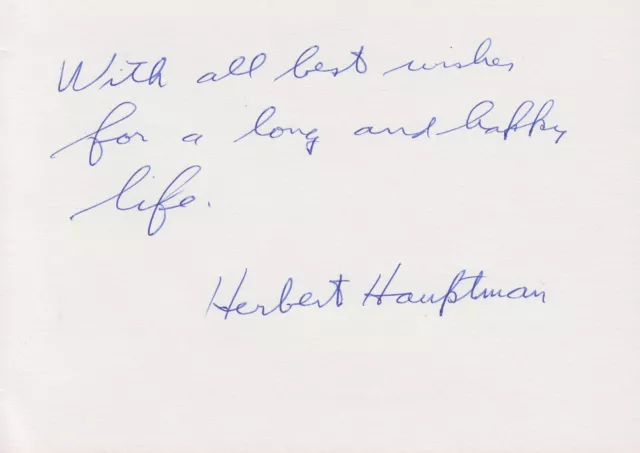 With all best wishes
for a long and happy
life.
Herbert Hauptman